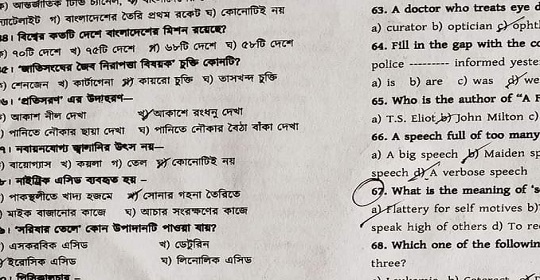 স্যাটেলাইট গ) বাংলাদেশের তৈরি প্রথম রকেট ঘ) কোনোটিই নয়
৪। বিশ্বের কতটি দেশে বাংলাদেশের মিশন রয়েছে?
) ৭০টি দেশে খ) ৭৫টি দেশে গ) ৬৮টি দেশে ঘ) ৫৮টি দেশে
৫। 'জাতিসংঘের জৈব নিরাপত্তা বিষয়ক' চুক্তি কোনটি?
) শেনজেন খ) কার্টাগেনা গ) কায়রো চুক্তি ঘ) তাসখন্দ চুক্তি
৬। 'প্রতিসরণ' এর উদাহরণ—
) আকাশ নীল দেখা খ) আকাশে রংধনু দেখা
) পানিতে নৌকার ছায়া দেখা ঘ) পানিতে নৌকার বৈঠা বাঁকা দেখা
৭। নবায়নযোগ্য জ্বালানির উৎস নয়—
) বায়োগ্যাস খ) কয়লা গ) তেল ঘ) কোনোটিই নয়
৮। নাইট্রিক এসিড ব্যবহৃত হয় –
) পাকস্থলীতে খাদ্য হজমে খ) সোনার গহনা তৈরিতে
) মাইক বাজানোর কাজে ঘ) আচার সংরক্ষণের কাজে
৯। 'সরিষার তেলে' কোন উপাদানটি পাওয়া যায়?
) এসকরবিক এসিড খ) ডেটুরিন
) ইরোসিক এসিড ঘ) লিনোলিক এসিড
63. A doctor who treats eye d
a) curator b) optician c) ophth
64. Fill in the gap with the co
police ---------- informed yeste
a) is b) are c) was d) we
65. Who is the author of "A F
a) T.S. Eliot b) John Milton c)
66. A speech full of too many
a) A big speech b) Maiden sp
speech d) A verbose speech
67. What is the meaning of 's
a) Flattery for self motives b)
speak high of others d) To re
68. Which one of the followin
three?